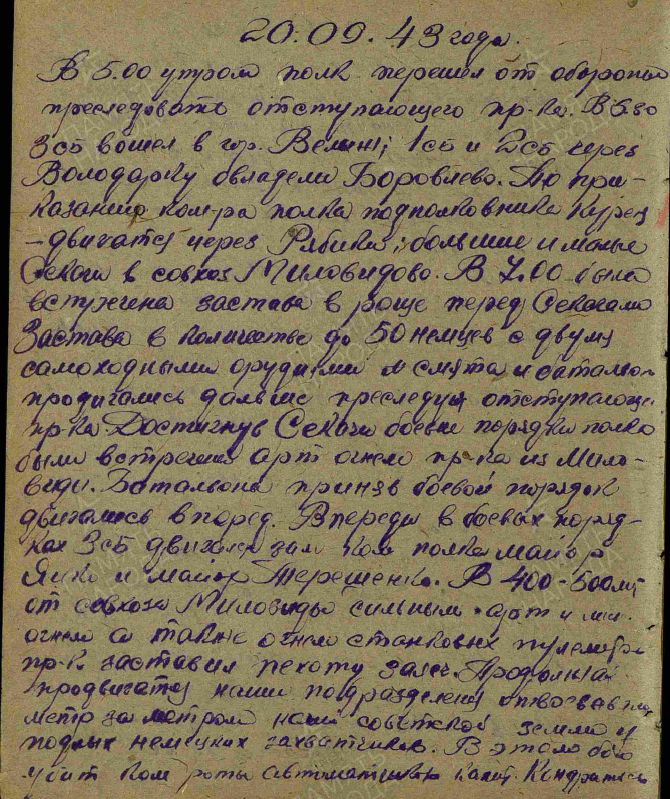 20.09.43 года.
В 5.00 утром полк перешел от обороны
преследовать отступающего пр-ка. В 5.30
3сб вошел в гор. Велиж; 1сб и 2сб через
Володарку овладели Боровлево. По при-
казанию ком-ра полка подполковника
двигаться через Рябики, большие и малые
Секачи в совхоз Миловидово. В 7.00 была
встречена застава в роще перед Секачами
Застава в количестве до 50 немцев с двумя
самоходными орудиями смята и батальон
продигались дальше преследуя отступающе
пр-ка. Достигнув Секачи боевые порядки полка
были встречены арт огнем пр-ка из Мило-
виды. Батальона приняв боевой порядок
двигались вперед. Впереди в боевых поряд-
ках 3сб двигался зам ком полка майор
и майор Терещенко. В 400-500мт
от совхоза Миловиды сильным арт и мин
огнем а также огнем станковых пулеметов
пр-к заставил пехоту залеч. Продолжая
продвигатся наши подразделения отвоевав
метр за метром нашей советской земли у
подлых немецких захватчиков. В этом бою
убит ком роты автоматчиков капит.